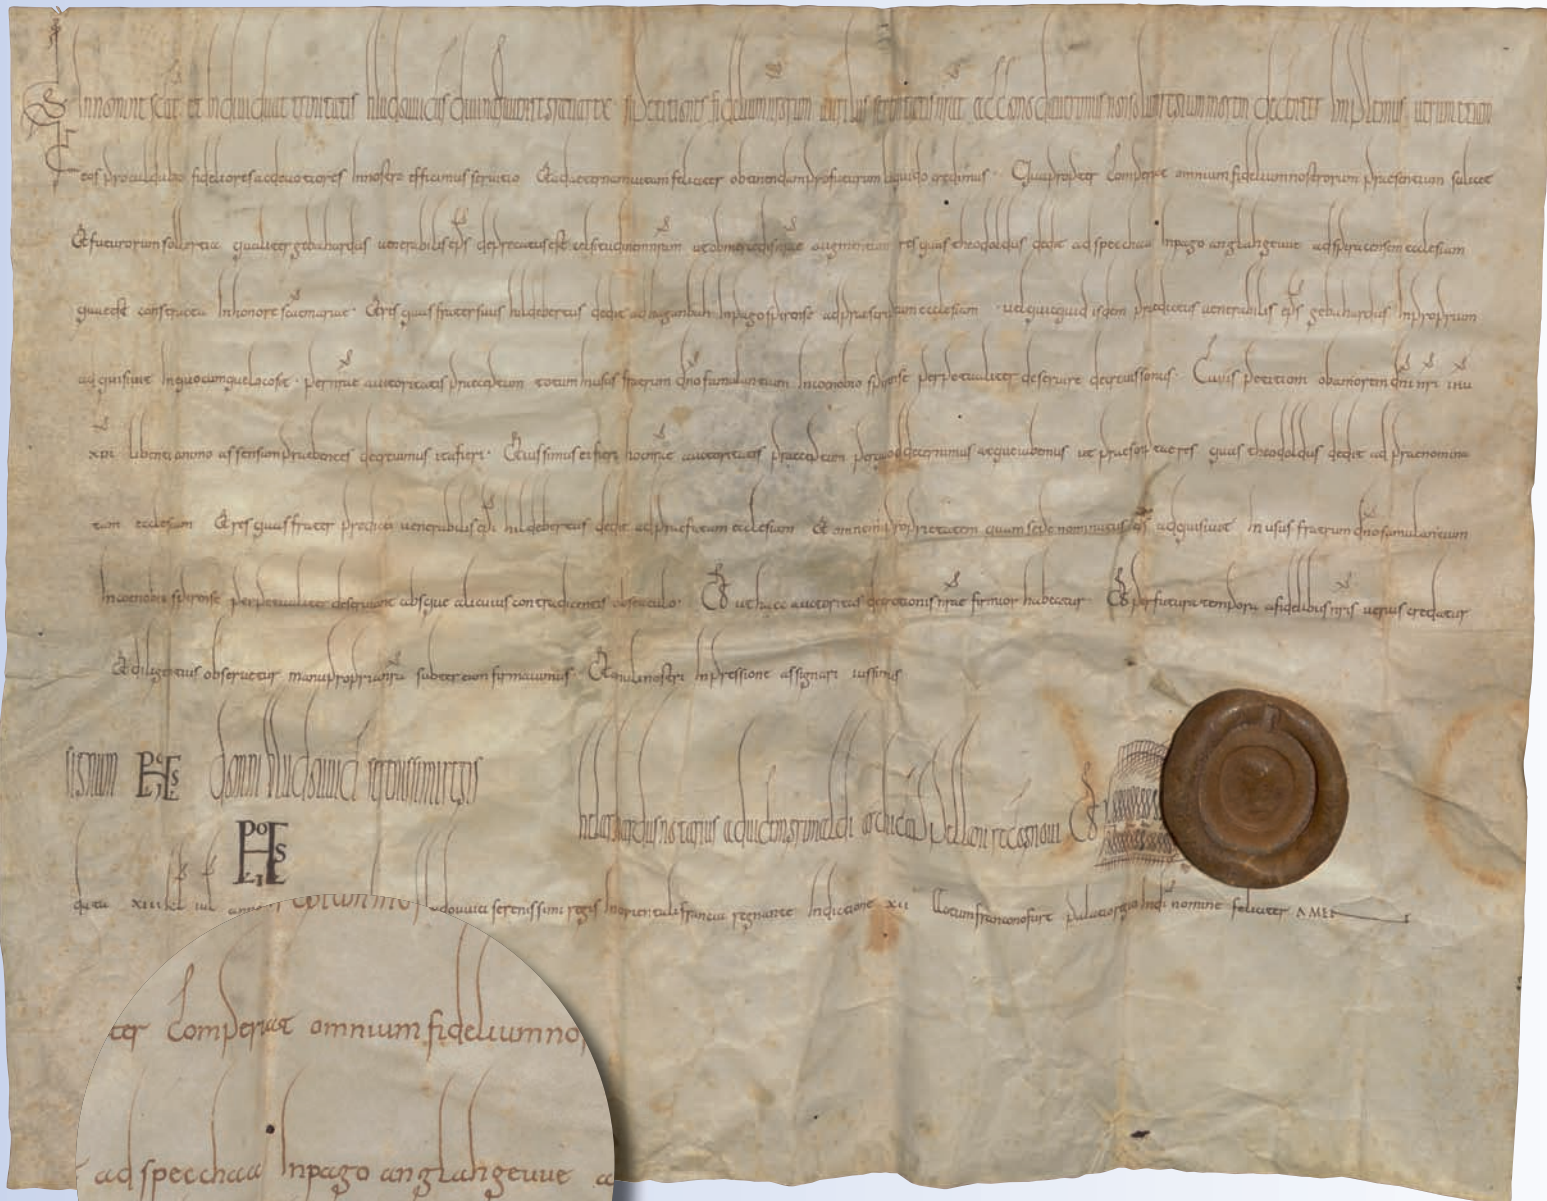 In nomine scae et individuae trinitatis hludouuicus divina favente gratia rex si petitionib fidelium nrorum auribus serenitatis nrae non solum regium morem decenter implemus verum etiam
eos procul dubio fideliores ac devotiores in nostro efficimus servitio Et ad aeternam vitam feliciter obtinendam profuturum liquido credimus · Quapropter comperiat omnium fidelium nostrorum praesentium scilicet
Et futurorum sollertia qualiter gebahardus venerabilis eps deprecatus est celsitudinem nram ut ob mercedis nrae augmentum res quas theodoldus dedit ad specchaa In pago anglahgeuue ad spirensem ecclesiam
quae est constructa In honore scae mariae · Et res quas frater suus hildebertus dedit ad haganbah In pago spirense ad praescriptam ecclesiam · vel quicquid isdem praedictus venerabilis eps gebahardus In proprium
adquisivit In quocumque loco sit · per nrae auctoritatis praeceptum totum In usus fratrum dno famulantium In coenobio spirense perpetualiter deservire decrevissemus · Cuius petitioni ob amorem dni nri ihu
xpi libenti animo assensum praebentes decrevimus ita fieri · Et iussimus ei fieri hoc nrae auctoritatis praeceptum per quod decernimus atque iubemus ut praescriptae res quas theodoldus dedit ad praenomina
tam ecclesiam Et res quas frater praedicti venerabilis epi hildebertus dedit ad praefatam ecclesiam Et omnem proprietatem quam sepe nominatus eps adquisivit In usus fratrum dno famulantium
In coenobio spirense perpetualiter deserviant absque alicuius contradicentis obstaculo · Et ut haec auctoritas decretionis nrae firmior habeatur · Et per futura tempora a fidelibus nris verius credatur
Et diligentius observetur manu propria nra subter eam firmavimus · Et anuli nostri Inpressione assignari iussimus
signum domni hludouuici serenissimi regis
hebarhardus notarius ad vicem grimaldi archicappellani recognovi
data xiii kl iul anno hludouuici serenissimi regis In orientali francia regnante Indictione xii Actum franconofurt palatio regio In di nomine feliciter AMEN
ter comperiat omnium fidelium no
ad specchaa In pago anglahgeuue a